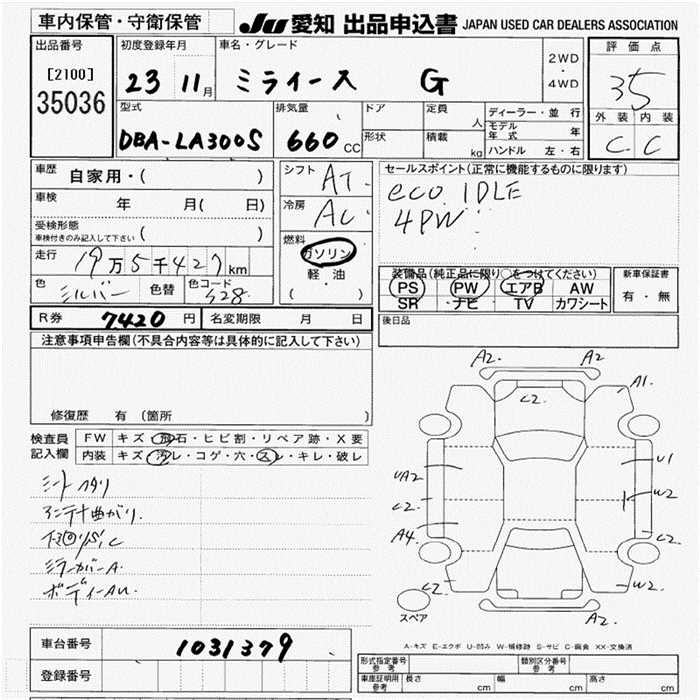 車内保管・守衛保管
JU 愛知 出品申込書 JAPAN USED CAR DEALERS ASSOCIATION
出品番号
[2100]
35036
初度登録年月
23 11月
車名・グレード
ミライース G
2WD
・
4WD
評価点
35
外装 内装
C C
型式
DBA-LA300S
排気量
660 CC
ドア
形状
定員
人
積載
kg
ディーラー・並行
モデル年式 年
ハンドル 左・右
車歴
自家用・( )
車検
年 月( 日)
受検形態
車検付きのみ記入して下さい ( )
走行
19万5千427km
色
シルバー
色替
色コード
S28
シフト
AT
冷房
AC
燃料
ガソリン
軽・油
( )
セールスポイント(正常に機能するものに限ります)
eco IDLE
4PW
装備品(純正品に限り○をつけてください)
PS PW エアB AW
SR ナビ TV カワシート
新車保証書
有・無
後日品
R券 7420円
名変期限 月 日
注意事項申告欄(不具合内容等は具体的に記入して下さい)
修復歴 有 (箇所 )
検査員
記入欄
FW キズ・飛石・ヒビ割・リペア跡・X要
内装 キズ・汚レ・コゲ・穴・スレ・キレ・破レ
シートヘタリ
アンテナ曲がり.
ミラーカバーA.
A2. A2
A1.
C2.
UA2
U1
C2.
W2
A4.
C2.
C2.
W2.
A2.
スペア
A-キズ E-エクボ U-凹み W-補修跡 S-サビ C-腐食 XX-交換済
車台番号
1031379
登録番号
形式指定番号
参考
類別区分番号
参考
車庫証明用
参考
長さ cm
幅 cm
高さ cm